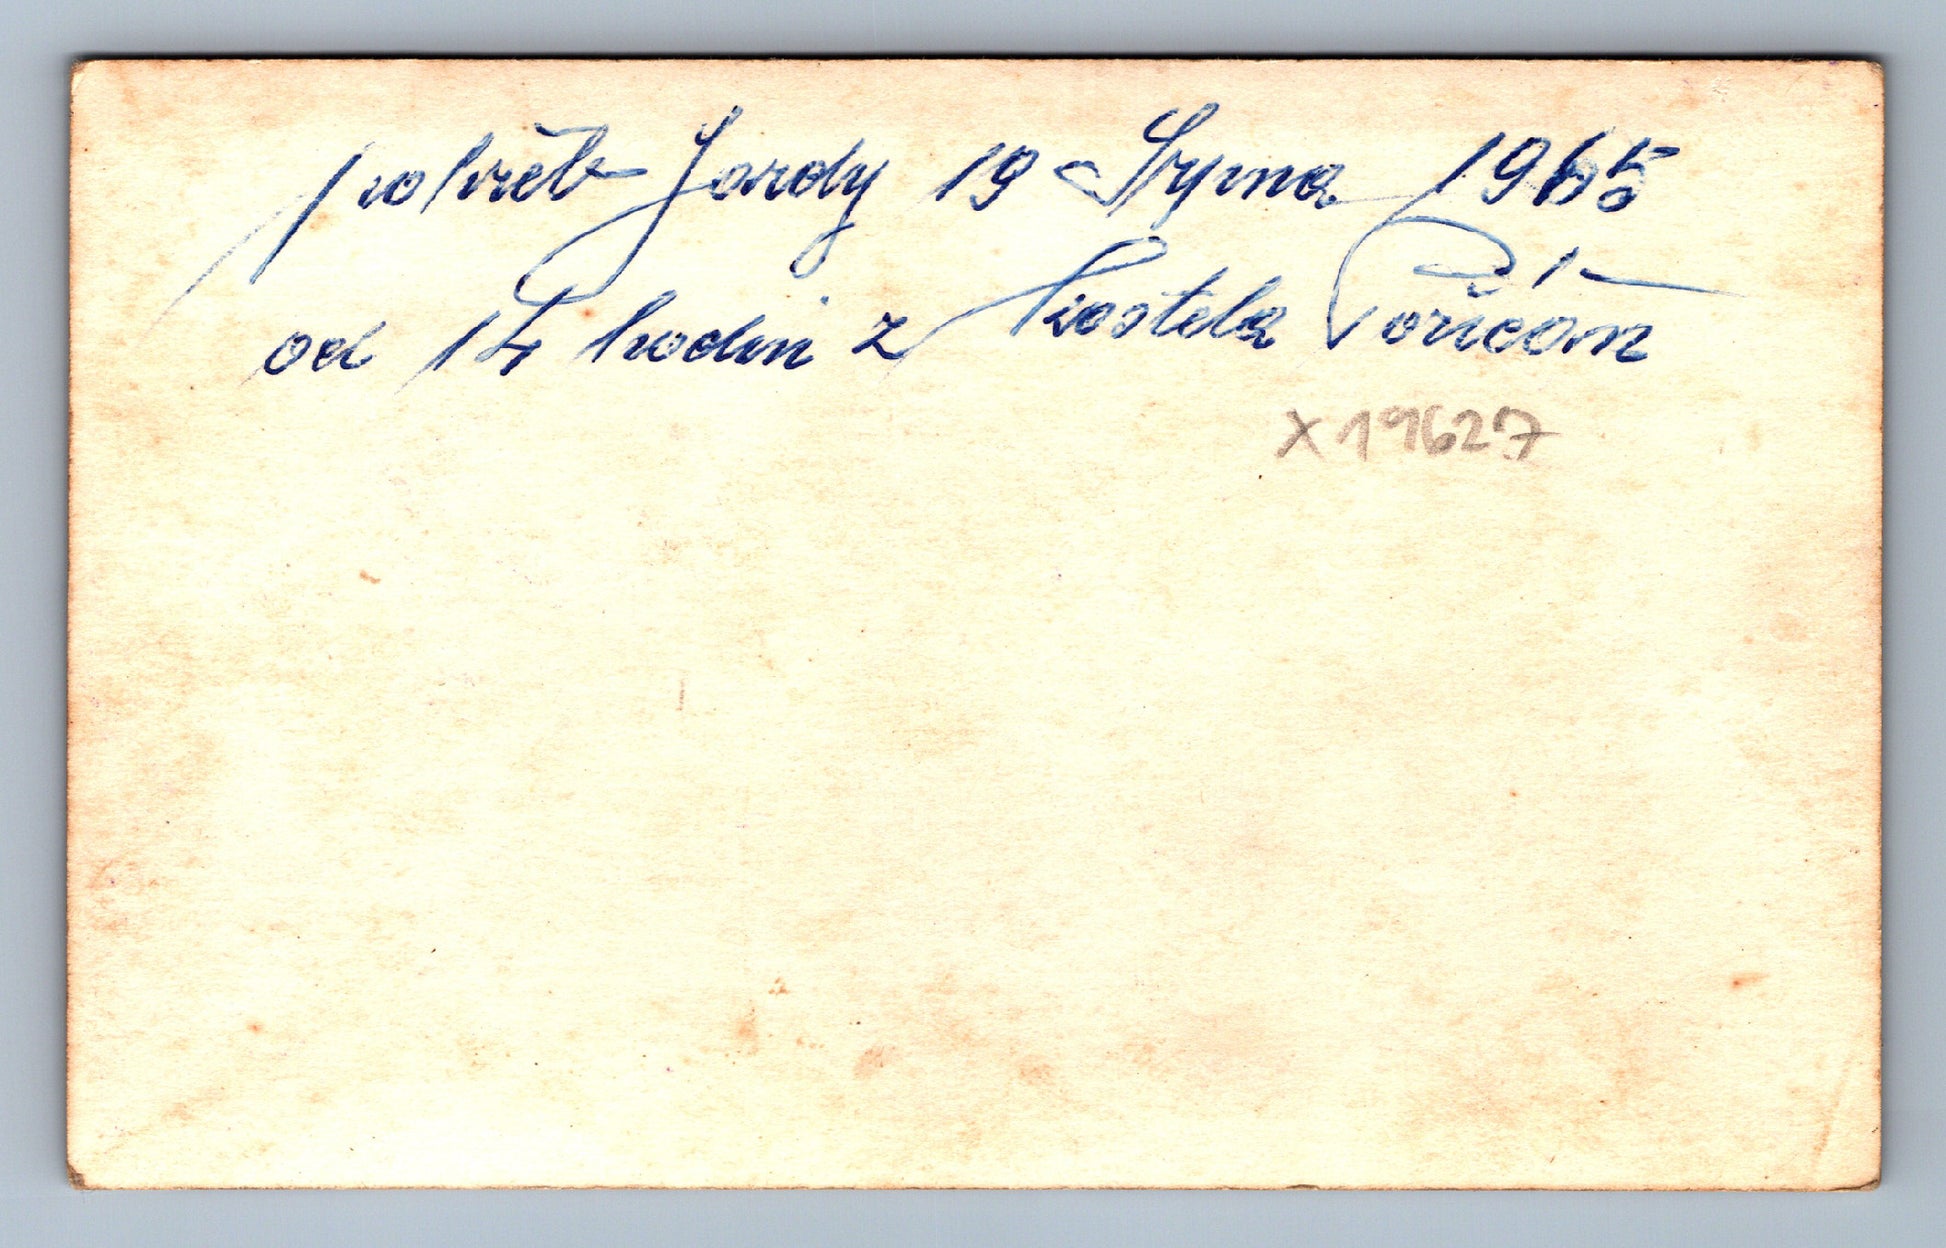 pohřeb Jardy 19 Srpna 1965
od 14 hodin z kostela Poříčan
X19627